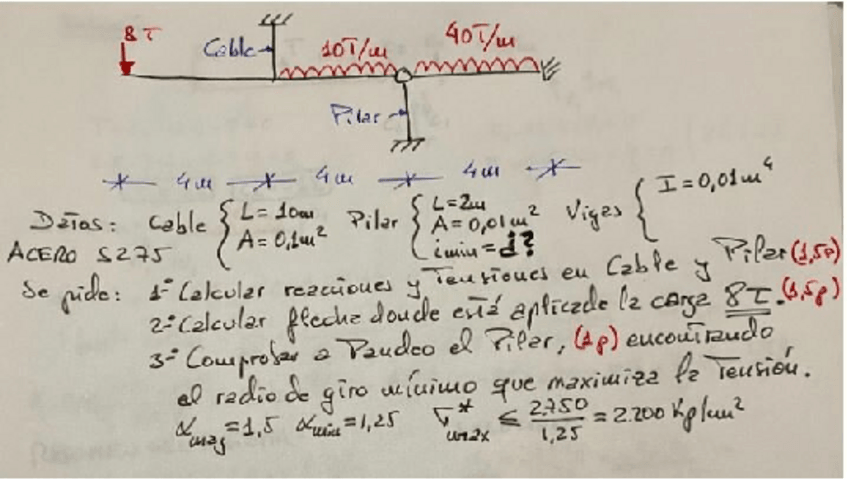 8T
Cable
10T/m
40T/m
Pilar
4m 4m 4m
Datos: Cable { L = 10m A = 0,1m² Pilar { L = 2m A = 0,01m² imin = d? Vigas { I = 0,01m⁴
ACERO S275
Se pide: 1º Calcular reacciones y Tensiones en Cable y Pilar (1,5p)
2º Calcular flecha donde está aplicada la carga 8T. (1,5p)
3º Comprobar a Pandeo el Pilar, (1p) encontrando
el radio de giro mínimo que maximiza la Tensión.
αmag = 1,5 αmin = 1,25 σ*max ≤ 2750/1,25 = 2.200 Kp/cm²